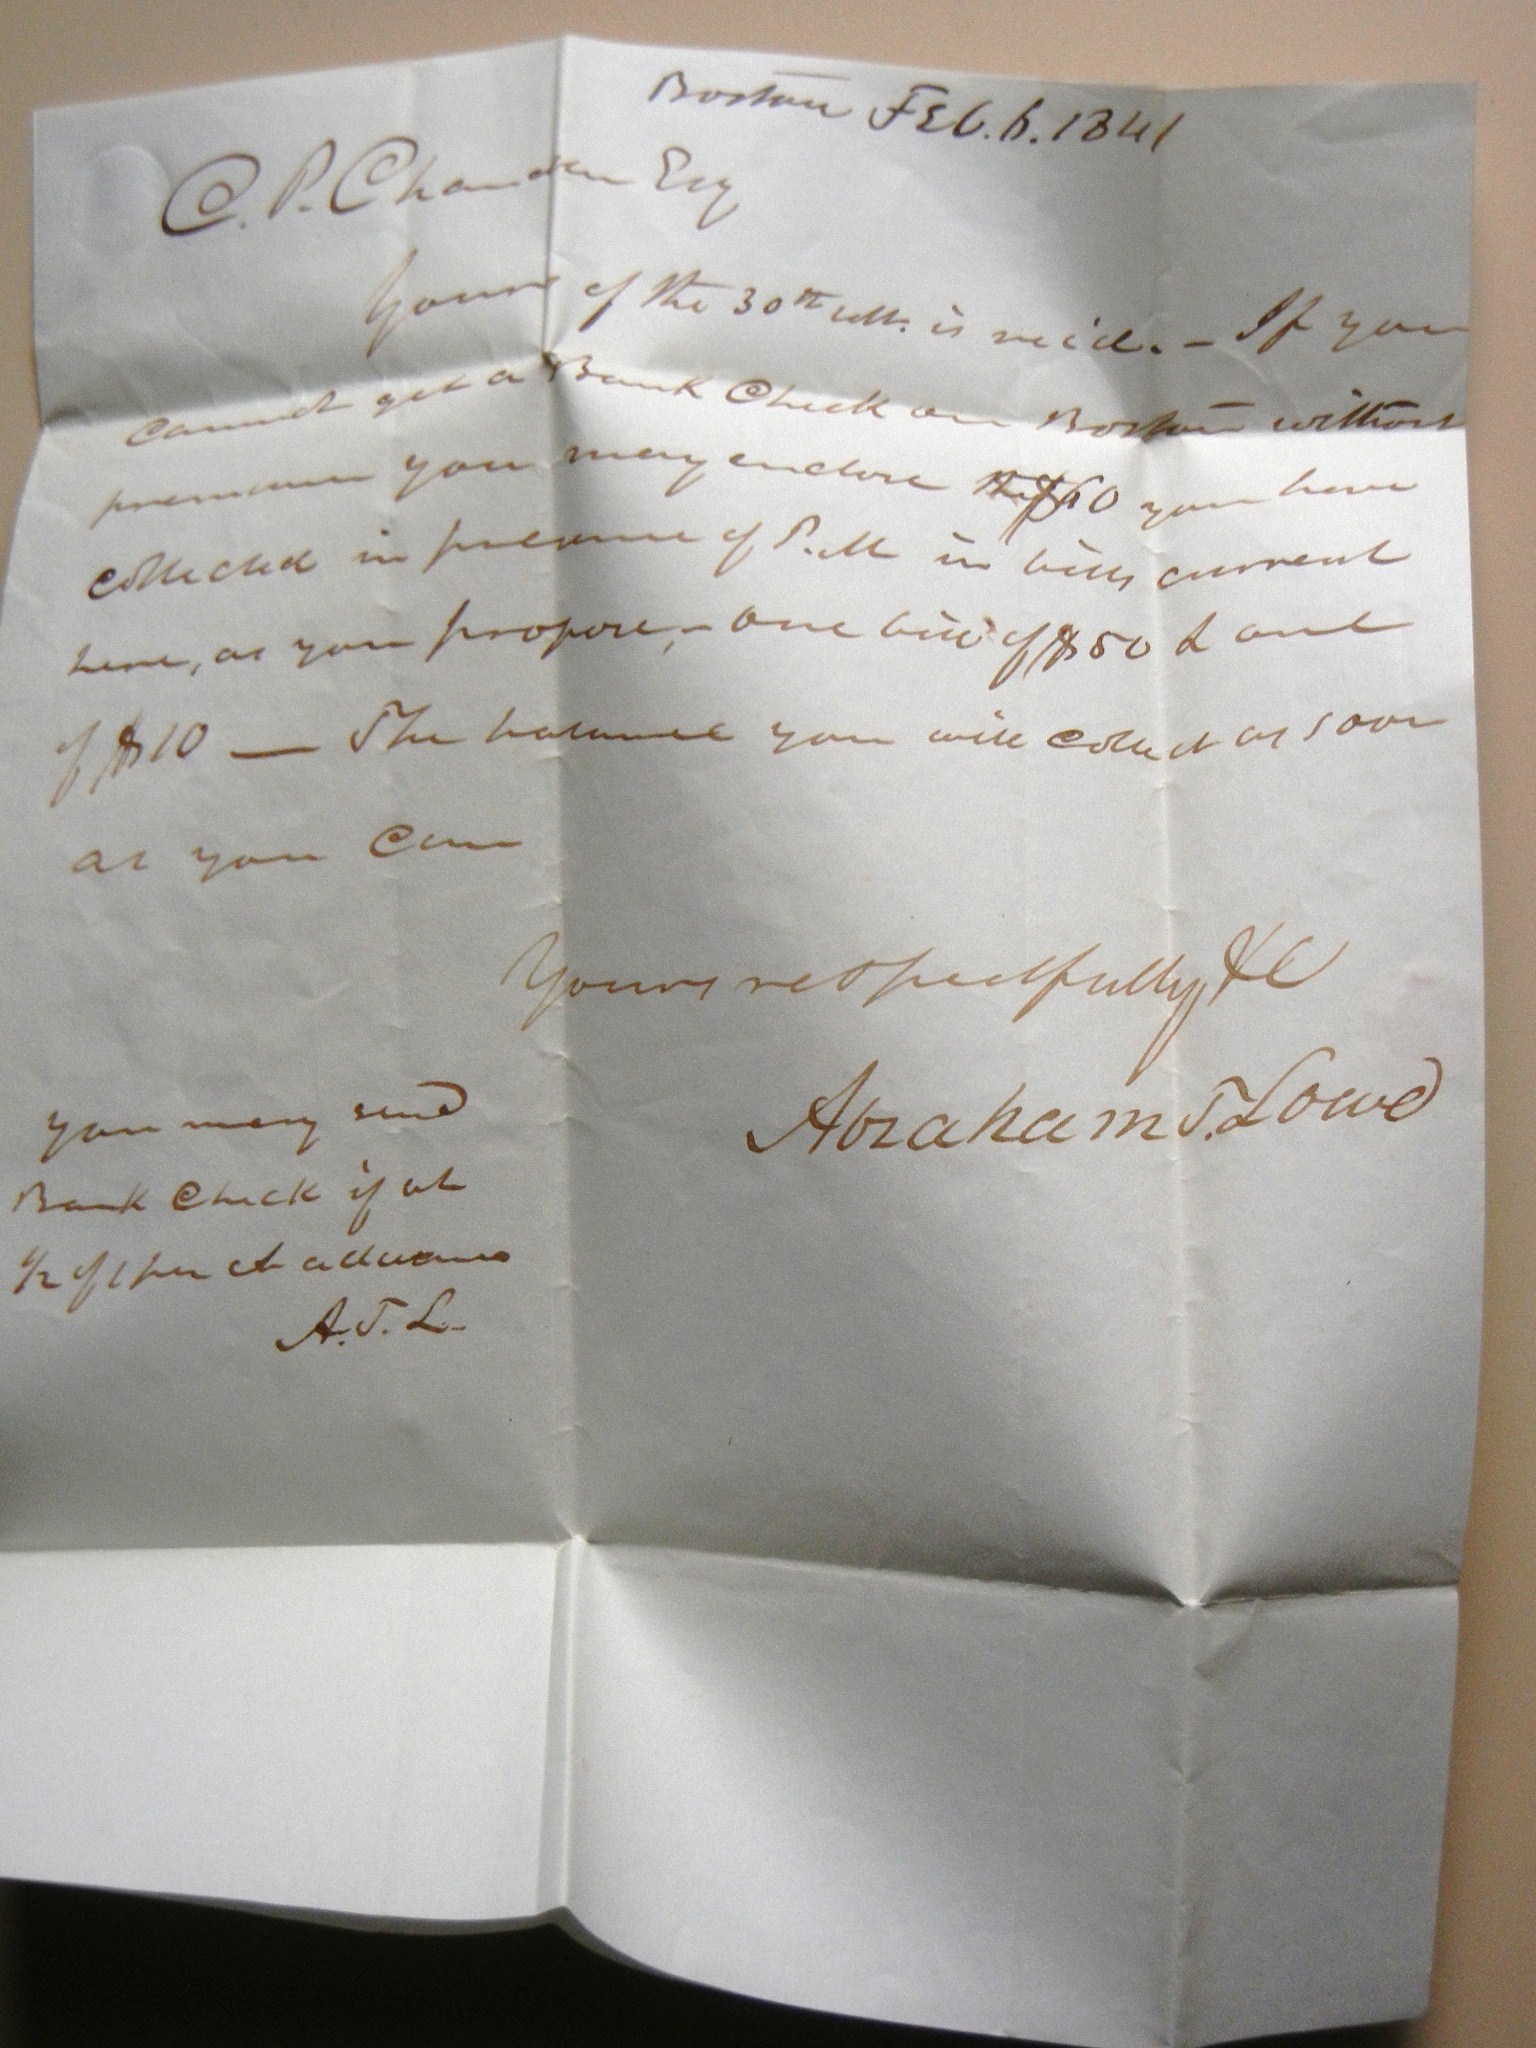 Boston Feb. 6. 1841
C. P. Chandler Esq
Yours of the 30th ult. is rec'd. - If you
cannot get a Bank Check on Boston without
premium you may enclose the $60 you have
collected in presence of P. M in bills current
here, as you propose, - one bill of $50 & one
of $10 — The balance you will collect as soon
as you can
Yours respectfully, &C
Abraham T. Lowe
you may send
Bank Check if at
1/2 of 1 per ct advance
A. T. L.